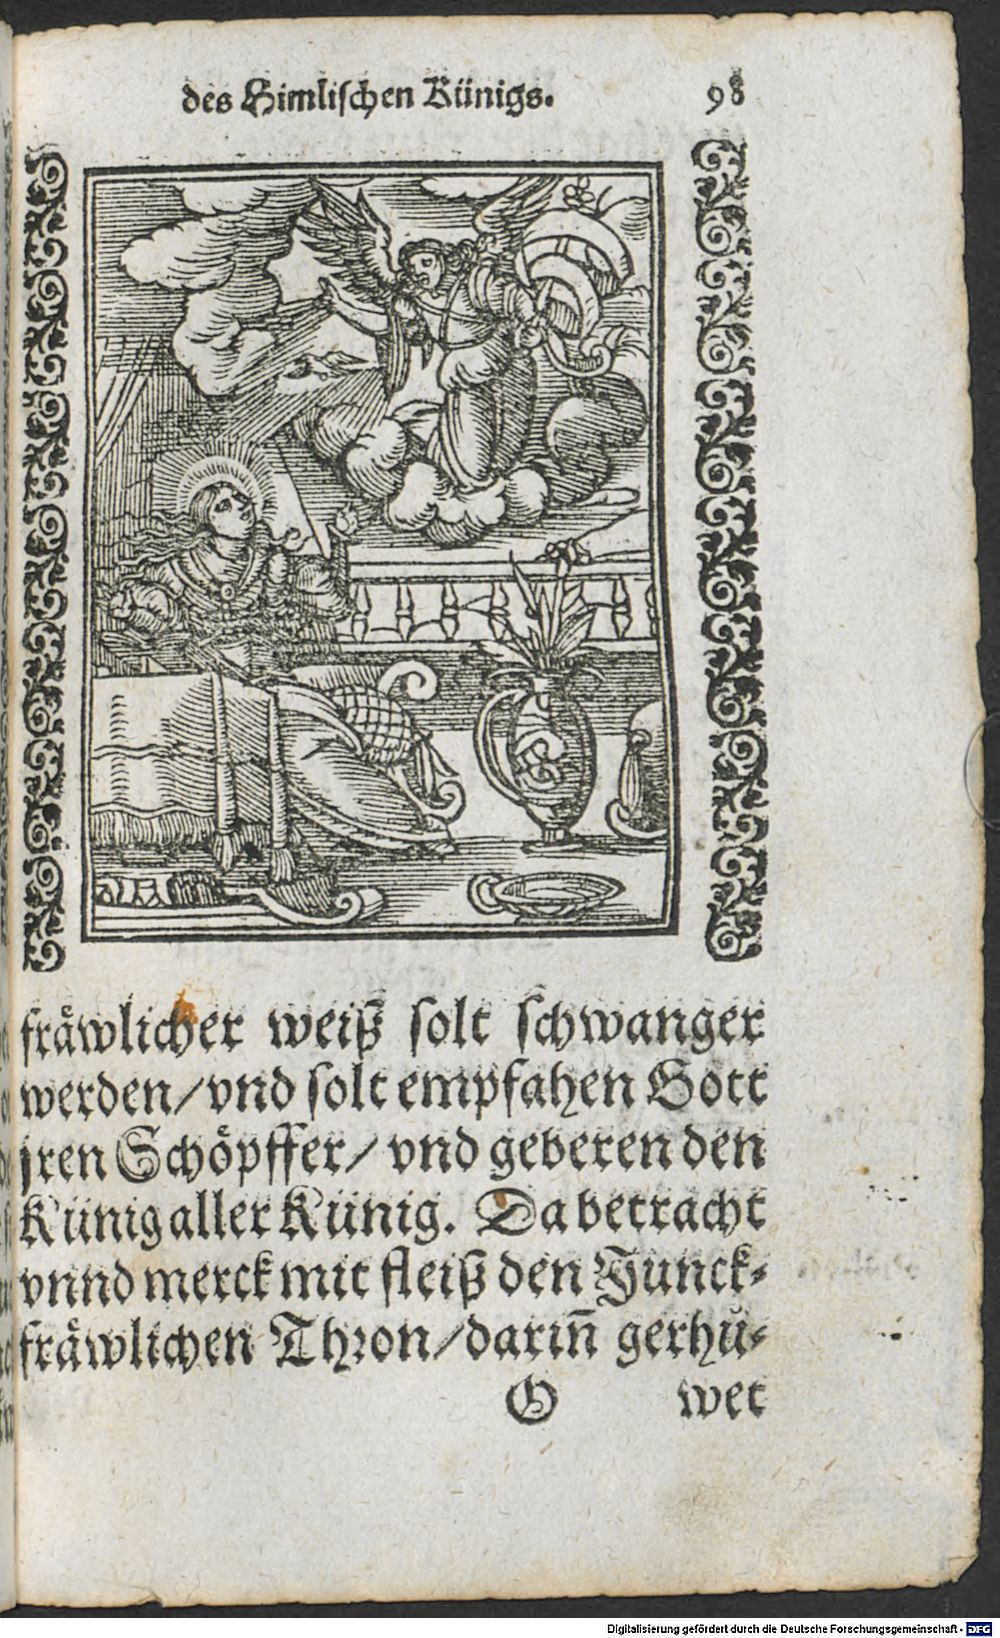 des Himlischen Künigs. 98
fräwlicher weiß solt schwanger
werden/vnd solt empfahen Gott
jren Schöpffer/ vnd geberen den
Künig aller Künig. Da betracht
vnnd merck mit fleiß den Junck-
fräwlichen Thron/darin̄ gerhů-
G wet
Digitalisierung gefördert durch die Deutsche Forschungsgemeinschaft - DFG